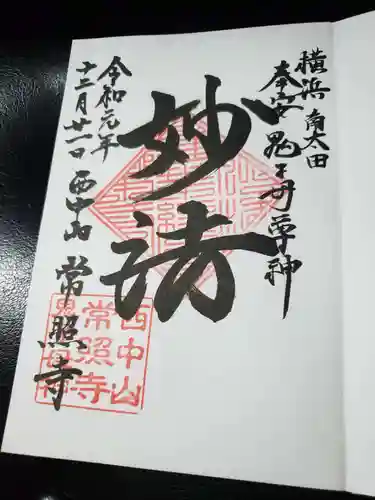 横浜南太田
奉安鬼子母尊神
妙法
令和元年
十二月廿一日 西中山
常照寺
西中山
常照寺
鬼子母神